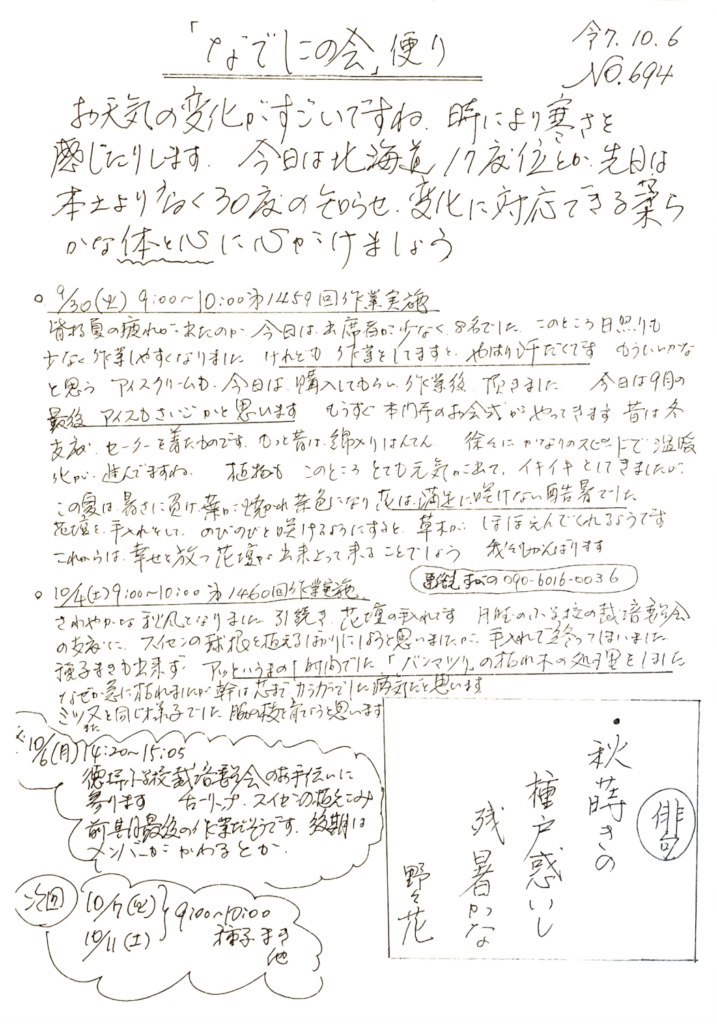 「なでしこの会」便り
令7.10.6
NO.694
お天気の変化がすごいですね、時により寒さを
感じたりします。今日は北海道17度位とか、先日は
本土より高く30度の知らせ、変化に対応できる柔ら
かな体と心に心がけましょう
○ 9/30(火) 9:00〜10:00 第1459回作業実施
皆様夏の疲れが出たのか 今日は出席者が少なく、8名でした このところ日照りも
少なく作業しやすくなりました けれども 作業をしてますと、やはり汗だくです もういいかな
と思う アイスクリームも、今日は、購入してもらい 作業後 頂きました 今日は9月の
最後 アイスもさいごかと思います もうすぐ本門寺のお会式がやってきます 昔は冬
支度、セーターを着たものです、もっと昔は、綿入りはんてん 徐々に かなりのスピードで温暖
化が、進んでますね。 植物も このところ とても元気が出て、イキイキとしてきましたが、
この夏は暑さに負け、葉が焼かれ茶色になり 花は、満足に咲けない酷暑でした
花壇を、手入れをして、のびのびと咲けるようにすると、草木が ほほえんでくれるようです
これからは、幸せを放つ花壇が出来上って来ることでしょう がんばります
○ 10/4(土) 9:00〜10:00 第1460回作業実施
090-6016-0036
さわやかな秋風となりました 引続き、花壇の手入れです 小学校の栽培委員会
の支度に、スイセンの球根を植えるばかりにしようと思いましたが、手入れで終ってしまいました
種子まきも出来ず アッというまの1時間でした 「バンマツリ」の枯れ木の処理をしました
なぜか急に枯れましたが幹は芯までカラカラでした 病気だと思います
ミツマタと同じ様子でした 脇の枝を育てようと思います
10/6(月) 14:20〜15:05
小学校栽培委員会のお手伝いに
参ります チューリップ、スイセンの植えこみ
前期は最後の作業だそうです、後期は
メンバーがかわるとか、
次回 10/7(火)
10/11(土)
9:00〜10:00
種子まき
他
俳句
・秋蒔きの
種戸惑いし
残暑かな
野々花